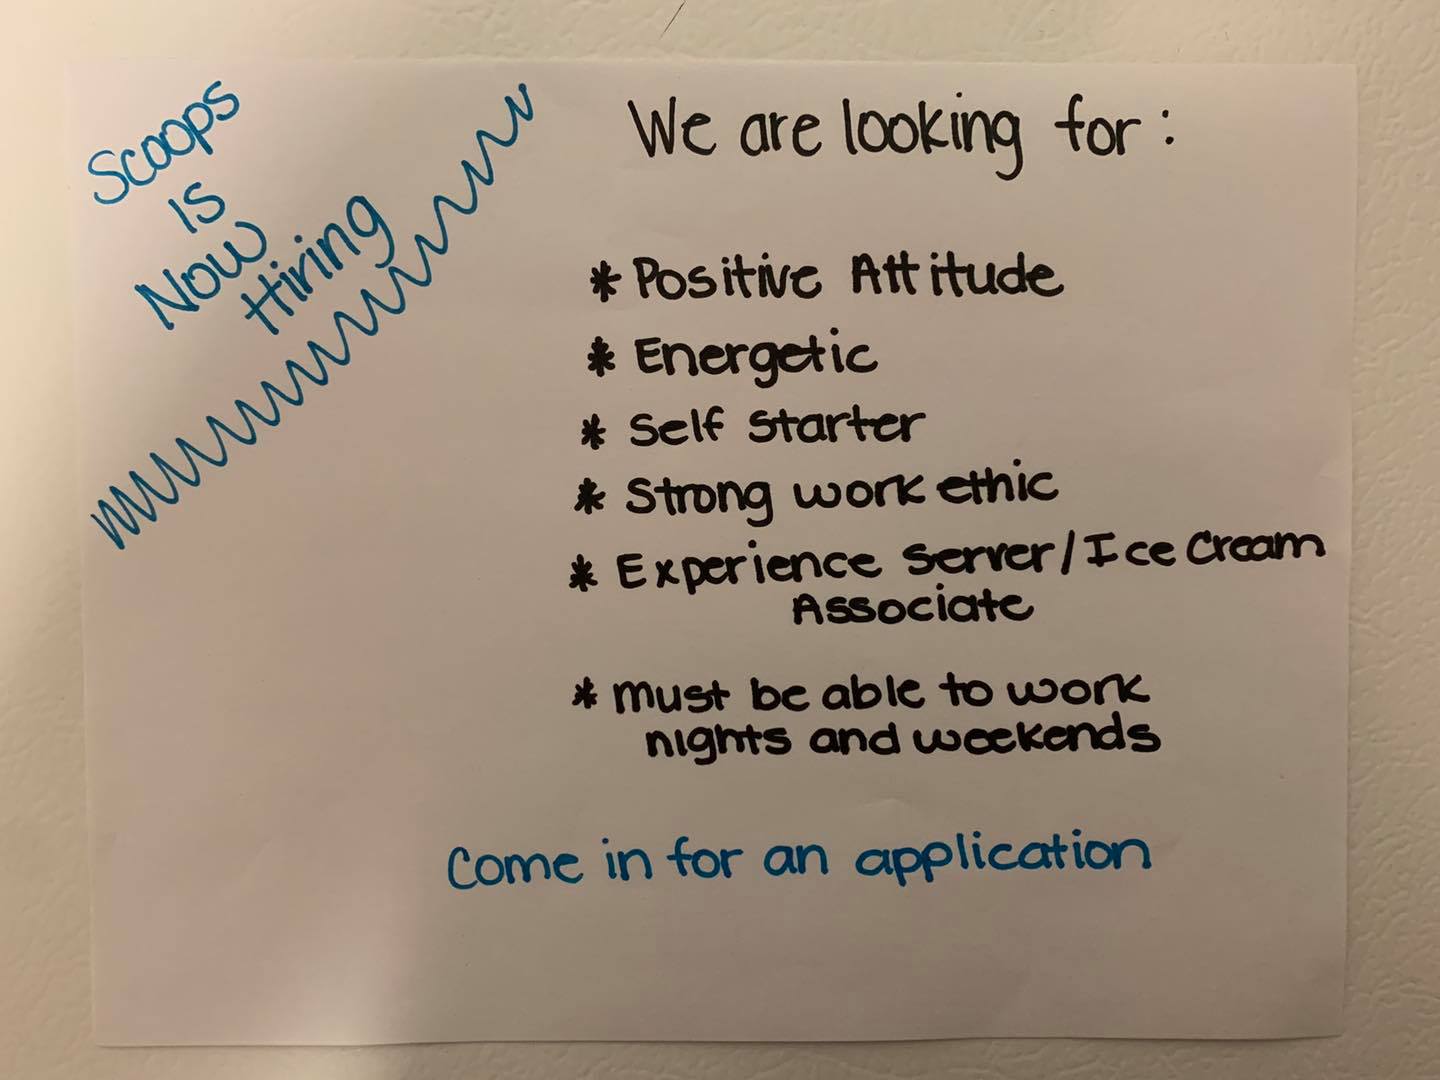 Scoops
is
Now
Hiring
We are looking for:
* Positive Attitude
* Energetic
* Self Starter
* Strong work ethic
* Experience Server/Ice Cream
Associate
* Must be able to work
nights and weekends
Come in for an application